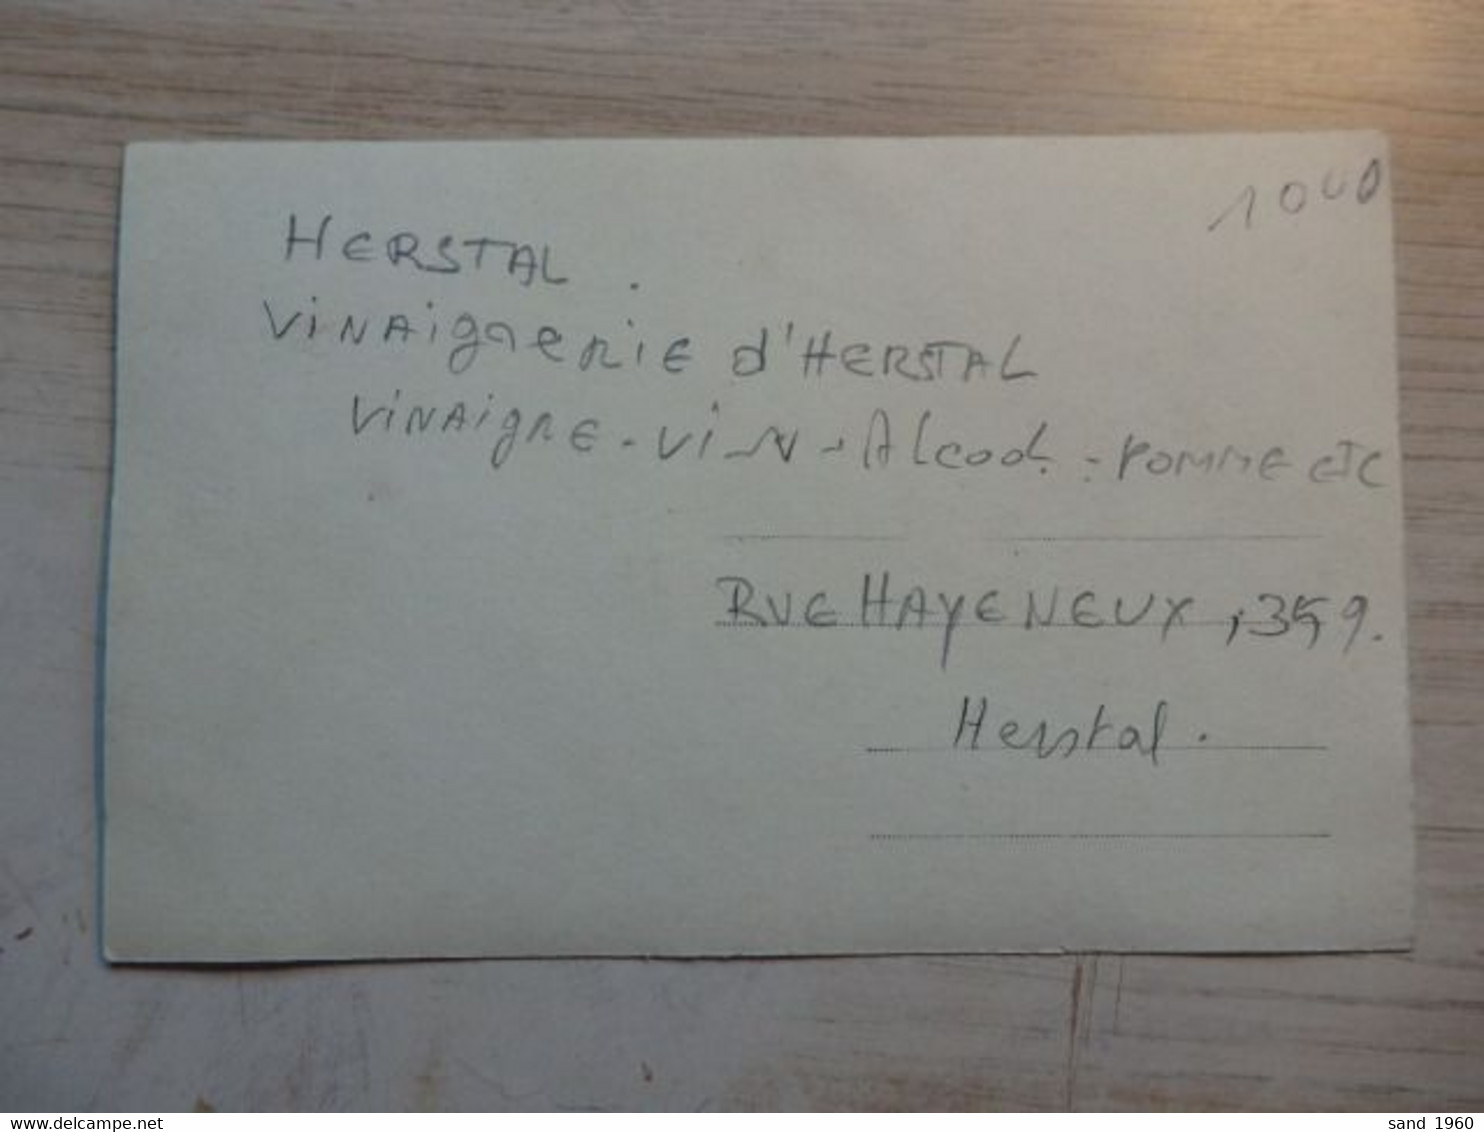 1000
HERSTAL.
VINAigRERIE d'HERSTAL
VINAigRE - VIN - Alcool. - POMME ETC
RUE HAYENEUX, 359.
Herstal.
www.delcampe.net
sand_1960